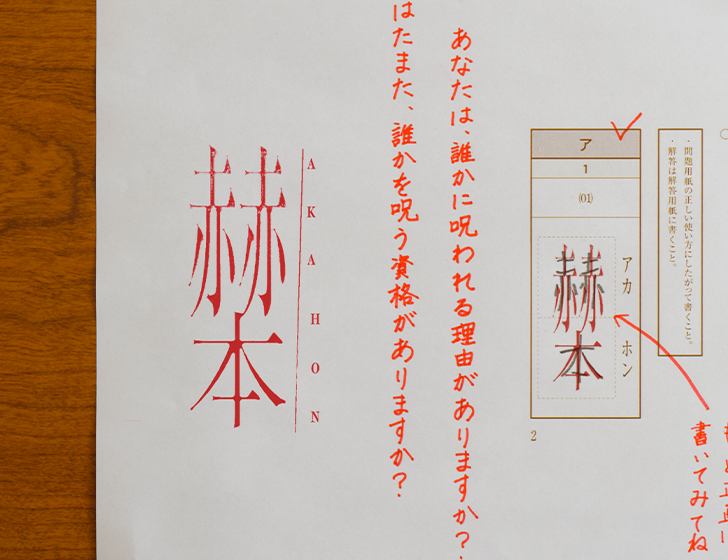 書いてみてね
・問題用紙の正しい使い方にしたがって書くこと。
・解答は解答用紙に書くこと。
ア
1
(01)
アカ ホン
赫本
2
あなたは、誰かに呪われる理由がありますか？
はたまた、誰かを呪う資格がありますか？
AKAHON
赫本